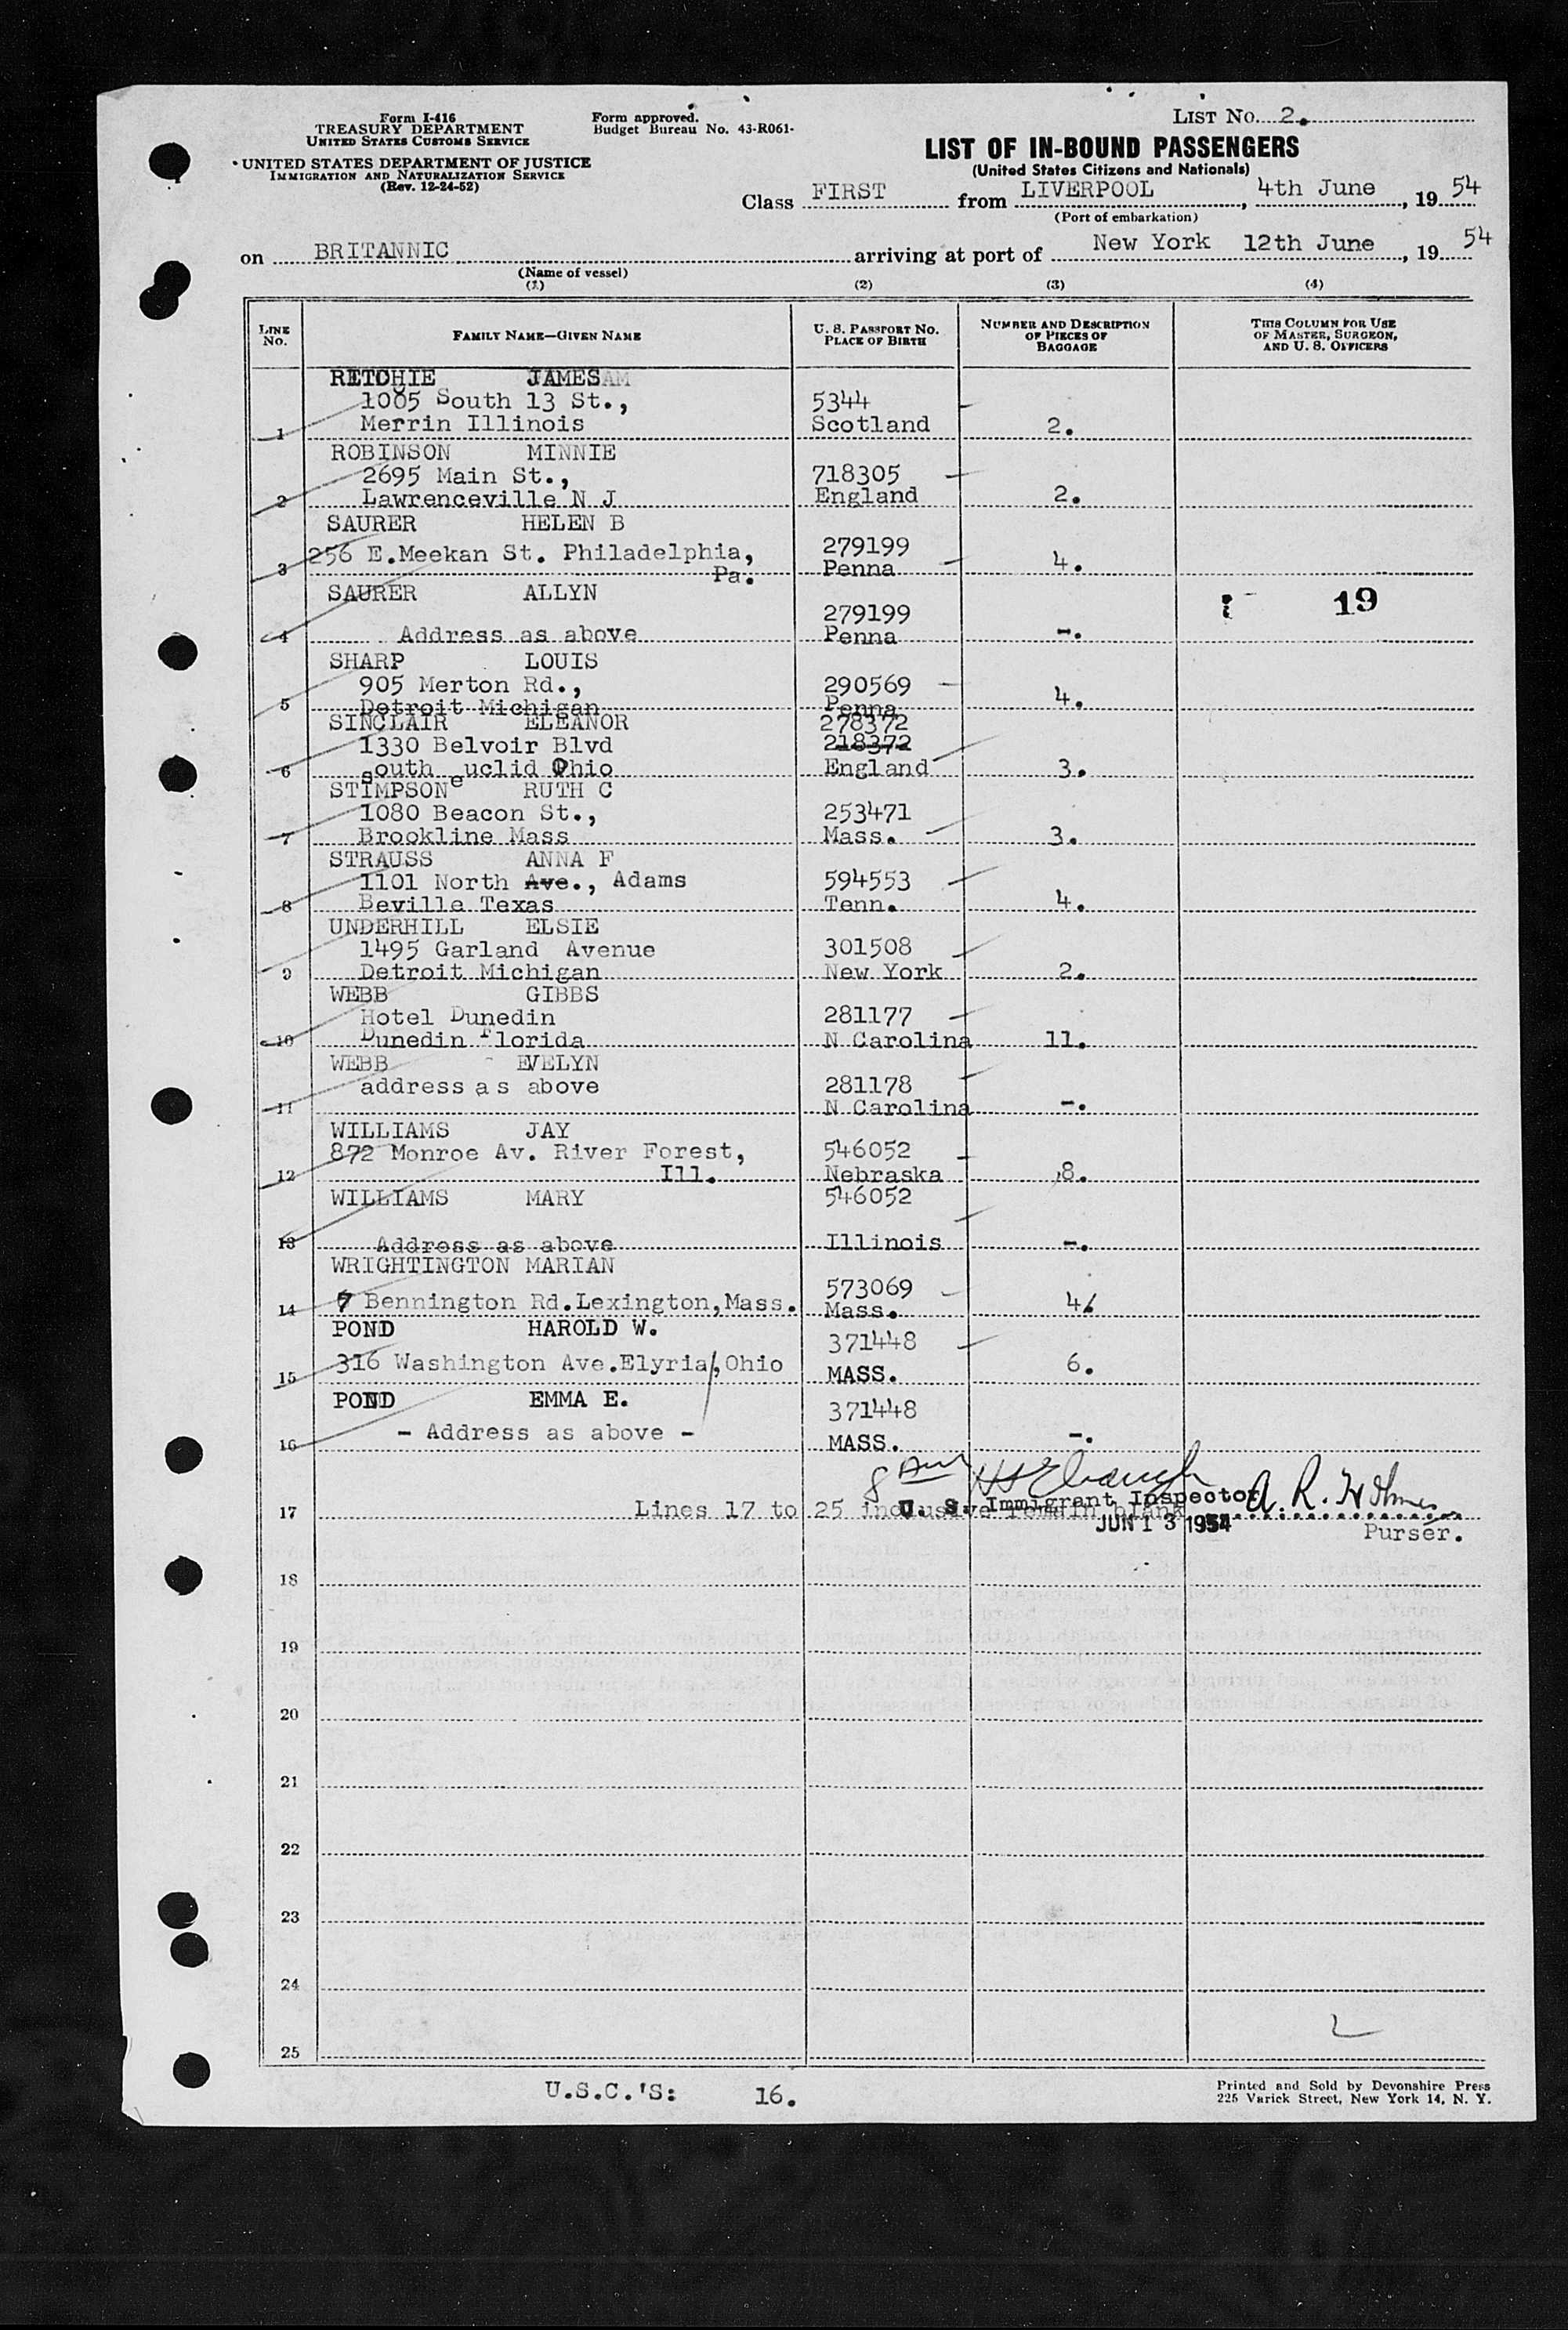 Form I-416
TREASURY DEPARTMENT
UNITED STATES CUSTOMS SERVICE
UNITED STATES DEPARTMENT OF JUSTICE
IMMIGRATION AND NATURALIZATION SERVICE
(Rev. 12-24-52)
Form approved.
Budget Bureau No. 43-R061-
LIST NO. 2.
LIST OF IN-BOUND PASSENGERS
(United States Citizens and Nationals)
Class FIRST from LIVERPOOL, 4th June, 19 54
(Port of embarkation)
on BRITANNIC arriving at port of New York 12th June, 19 54
(Name of vessel)
(1) (2) (3) (4)
LINE NO. FAMILY NAME—GIVEN NAME U. S. PASSPORT NO. PLACE OF BIRTH NUMBER AND DESCRIPTION OF PIECES OF BAGGAGE THIS COLUMN FOR USE OF MASTER, SURGEON, AND U. S. OFFICERS
RITCHIE JAMES
1005 South 13 St., 5344
1 Merrin Illinois Scotland 2.
ROBINSON MINNIE
2695 Main St., 718305
2 Lawrenceville N J England 2.
SAURER HELEN B
256 E.Meekan St. Philadelphia, 279199
3 Pa. Penna 4.
SAURER ALLYN
279199 19
4 Address as above Penna -.
SHARP LOUIS
905 Merton Rd., 290569
5 Detroit Michigan Penna 4.
SINCLAIR ELEANOR 278372
1330 Belvoir Blvd 218372
6 south euclid Ohio England 3.
STIMPSON RUTH C
1080 Beacon St., 253471
7 Brookline Mass Mass. 3.
STRAUSS ANNA F
1101 North Ave., Adams 594553
8 Beville Texas Tenn. 4.
UNDERHILL ELSIE
1495 Garland Avenue 301508
9 Detroit Michigan New York 2.
WEBB GIBBS
Hotel Dunedin 281177
10 Dunedin Florida N Carolina 11.
WEBB EVELYN
address as above 281178
11 N Carolina -.
WILLIAMS JAY
872 Monroe Av. River Forest, 546052
12 Ill. Nebraska 8.
WILLIAMS MARY 546052
13 Address as above Illinois -.
WRIGHTINGTON MARIAN
573069
14 7 Bennington Rd.Lexington,Mass. Mass. 4.
POND HAROLD W.
371448
316 Washington Ave.Elyria,Ohio 6.
15 MASS.
POND EMMA E.
371448
- Address as above -
16 MASS. -.
17 Lines 17 to 25 inclusive remain blank
U. S. Immigrant Inspector
A. R. Holmes
JUN 13 1954
Purser.
18
19
20
21
22
23
24
25
U.S.C.'S: 16.
Printed and Sold by Devonshire Press
225 Varick Street, New York 14, N. Y.